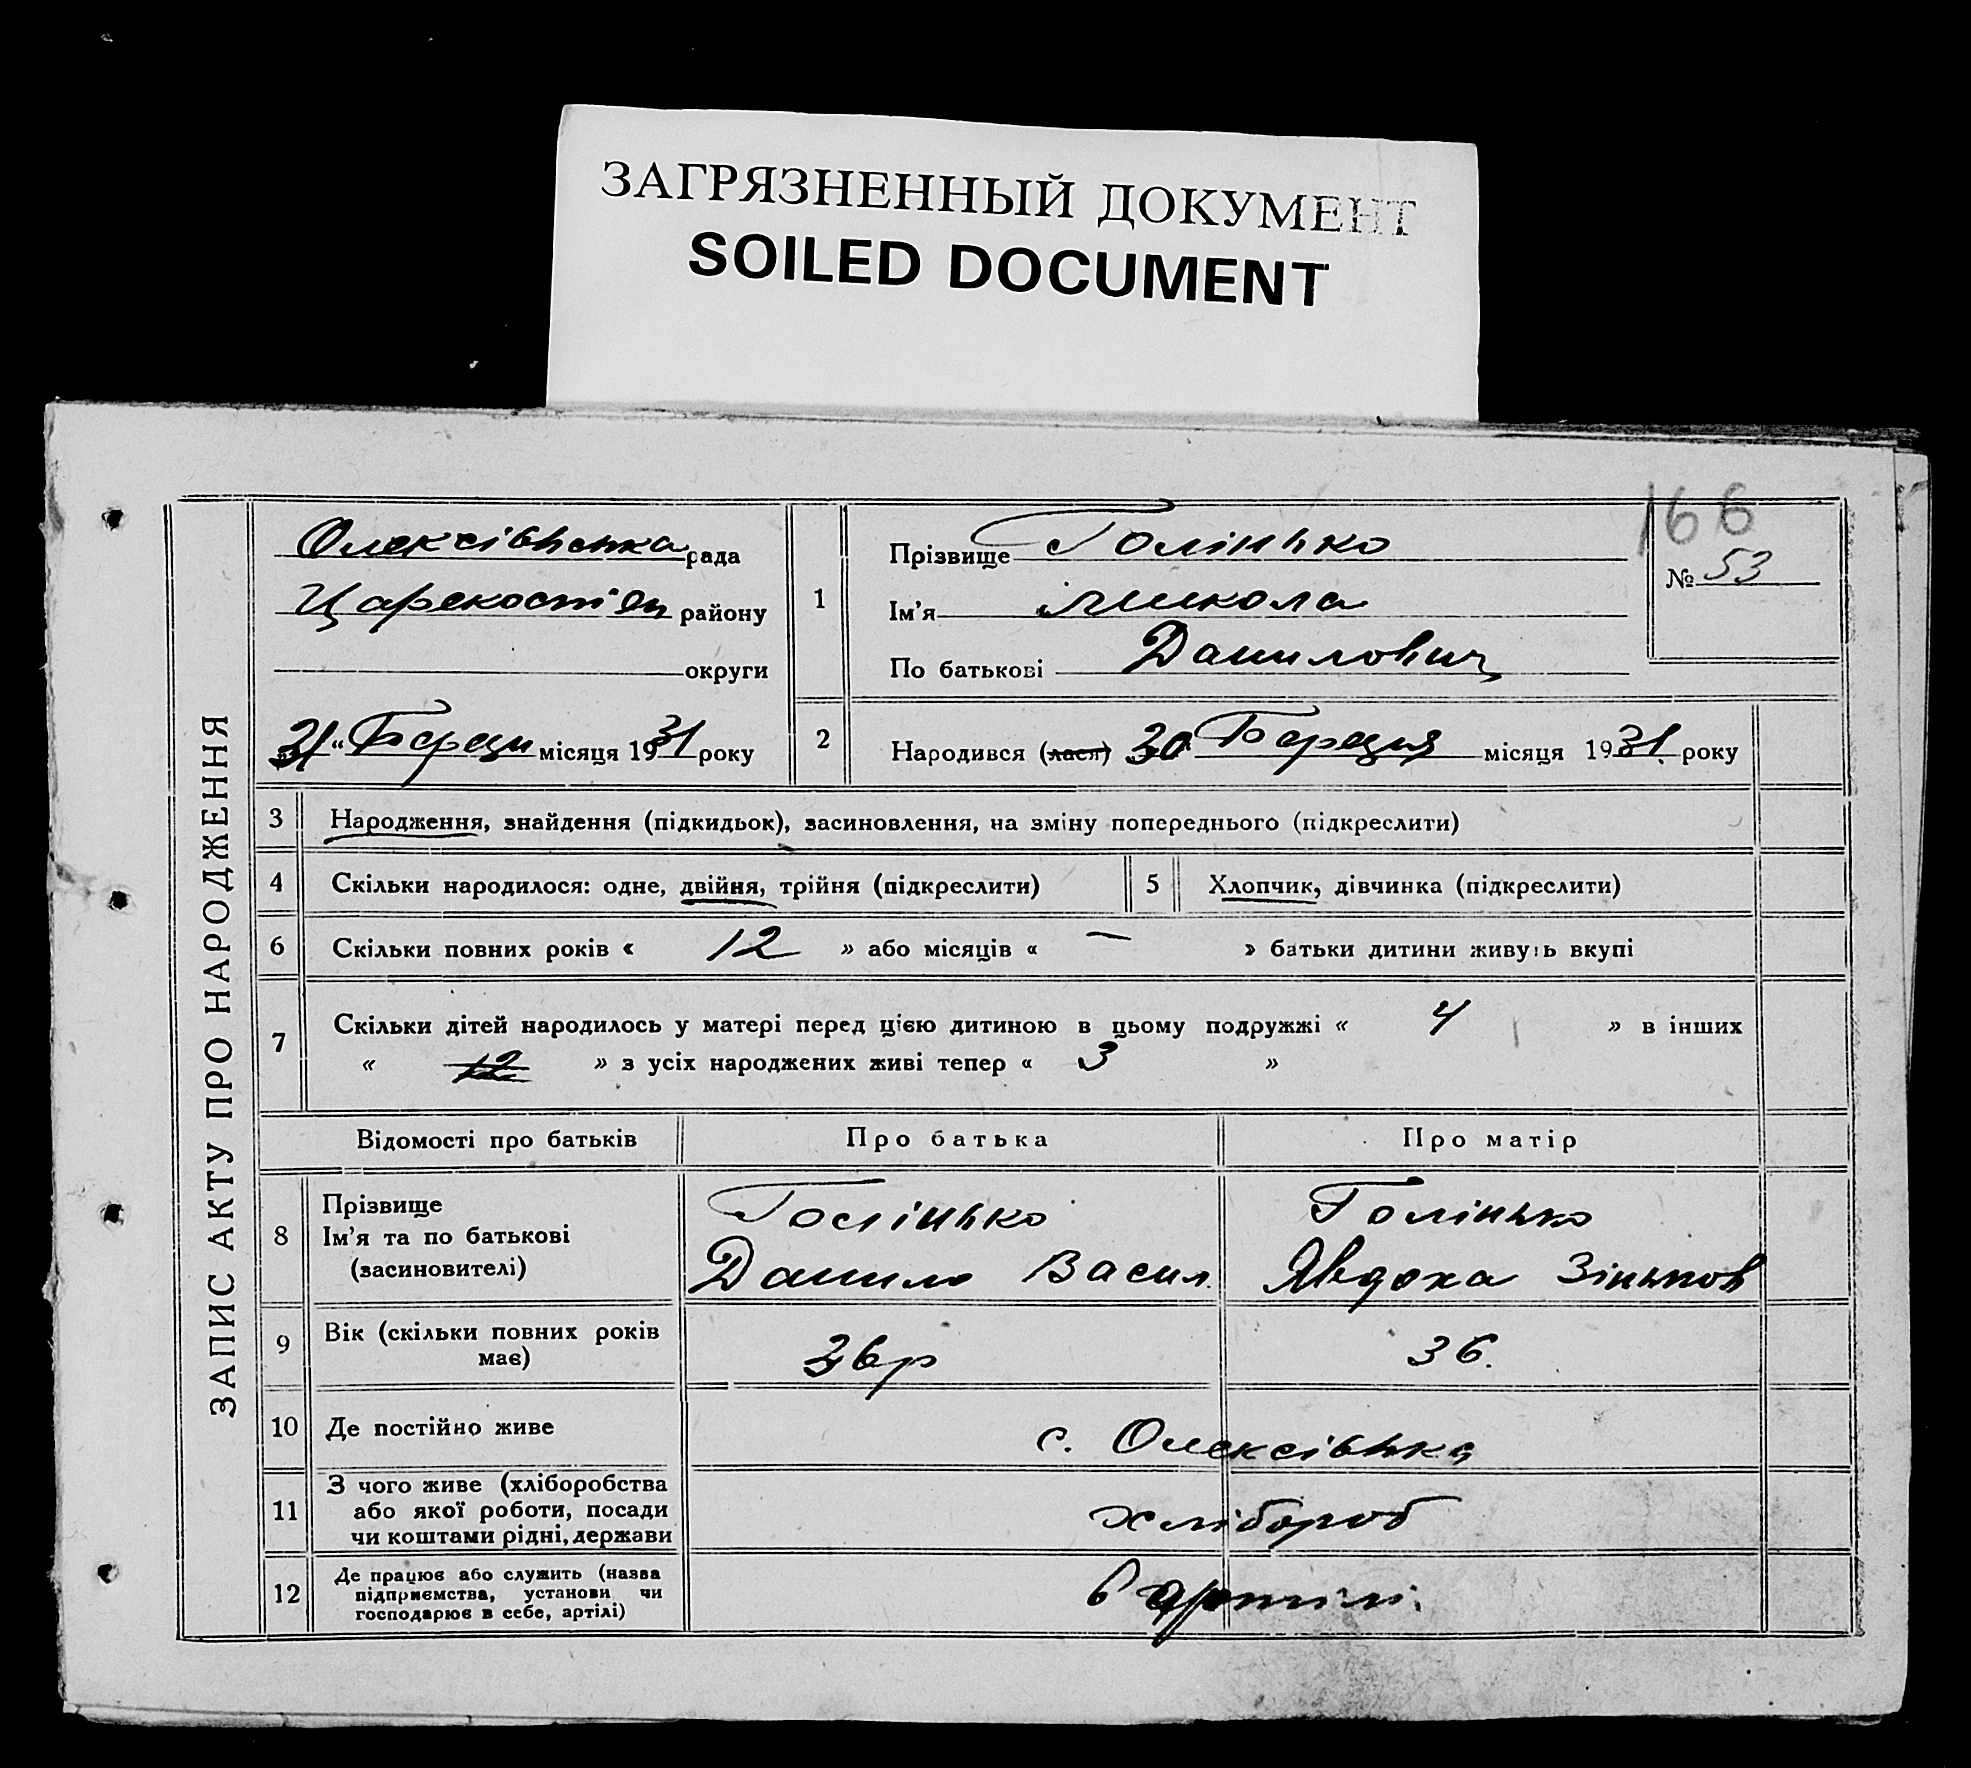 ЗАГРЯЗНЕННЫЙ ДОКУМЕНТ
SOILED DOCUMENT
166
ЗАПИС АКТУ ПРО НАРОДЖЕННЯ
Олексівська рада
району
округи
31 “ Березня місяця 1931 року
1
Прізвище Голінько
Ім’я Микола
По батькові Данилович
№ 53
2 Народився (лася) 30 Березня місяця 1931 року
3 Народження, знайдення (підкидьок), засиновлення, на зміну попереднього (підкреслити)
4 Скільки народилося: одне, двійня, трійня (підкреслити) 5 Хлопчик, дівчинка (підкреслити)
6 Скільки повних років « 12 » або місяців « — » батьки дитини живуть вкупі
7 Скільки дітей народилось у матері перед цією дитиною в цьому подружжі « 4 » в інших
« 12 » з усіх народжених живі тепер « 3 »
Відомості про батьків Про батька Про матір
8 Прізвище Голінько Голінько
Ім’я та по батькові Данило Васил. Явдоха Зіньков
(засиновителі)
9 Вік (скільки повних років 36 р 36.
має)
10 Де постійно живе с. Олексівка
11 З чого живе (хліборобства
або якої роботи, посади хлібороб
чи коштами рідні, держави
12 Де працює або служить (назва
підприємства, установи чи в артілі.
господарює в себе, артілі)